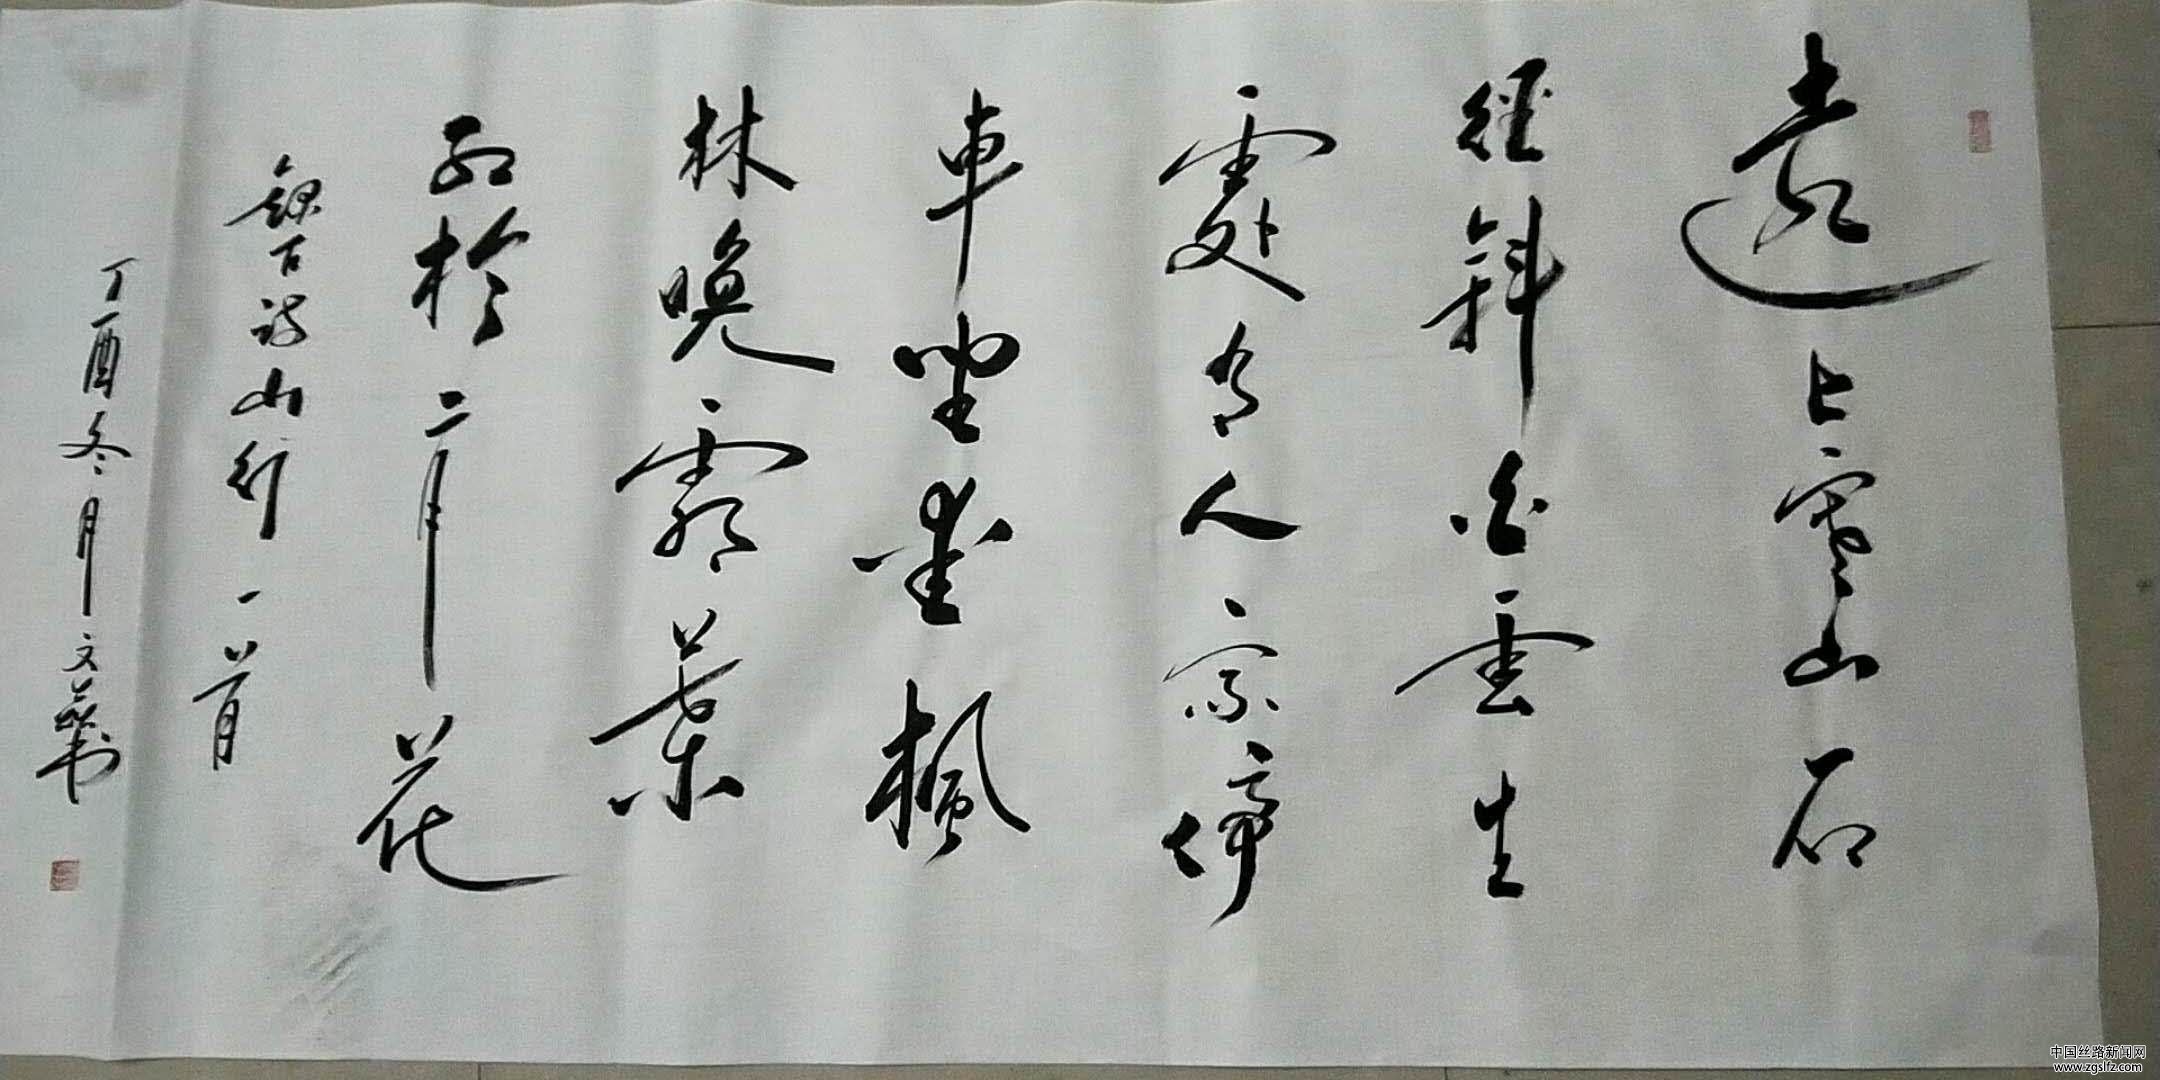 遠上寒山石
徑斜白雲生
處有人家停
車坐愛楓
林晚霜葉
紅於二月花
錄古詩山行一首
丁酉冬月文书
中国丝路新闻网
www.zgslfz.com